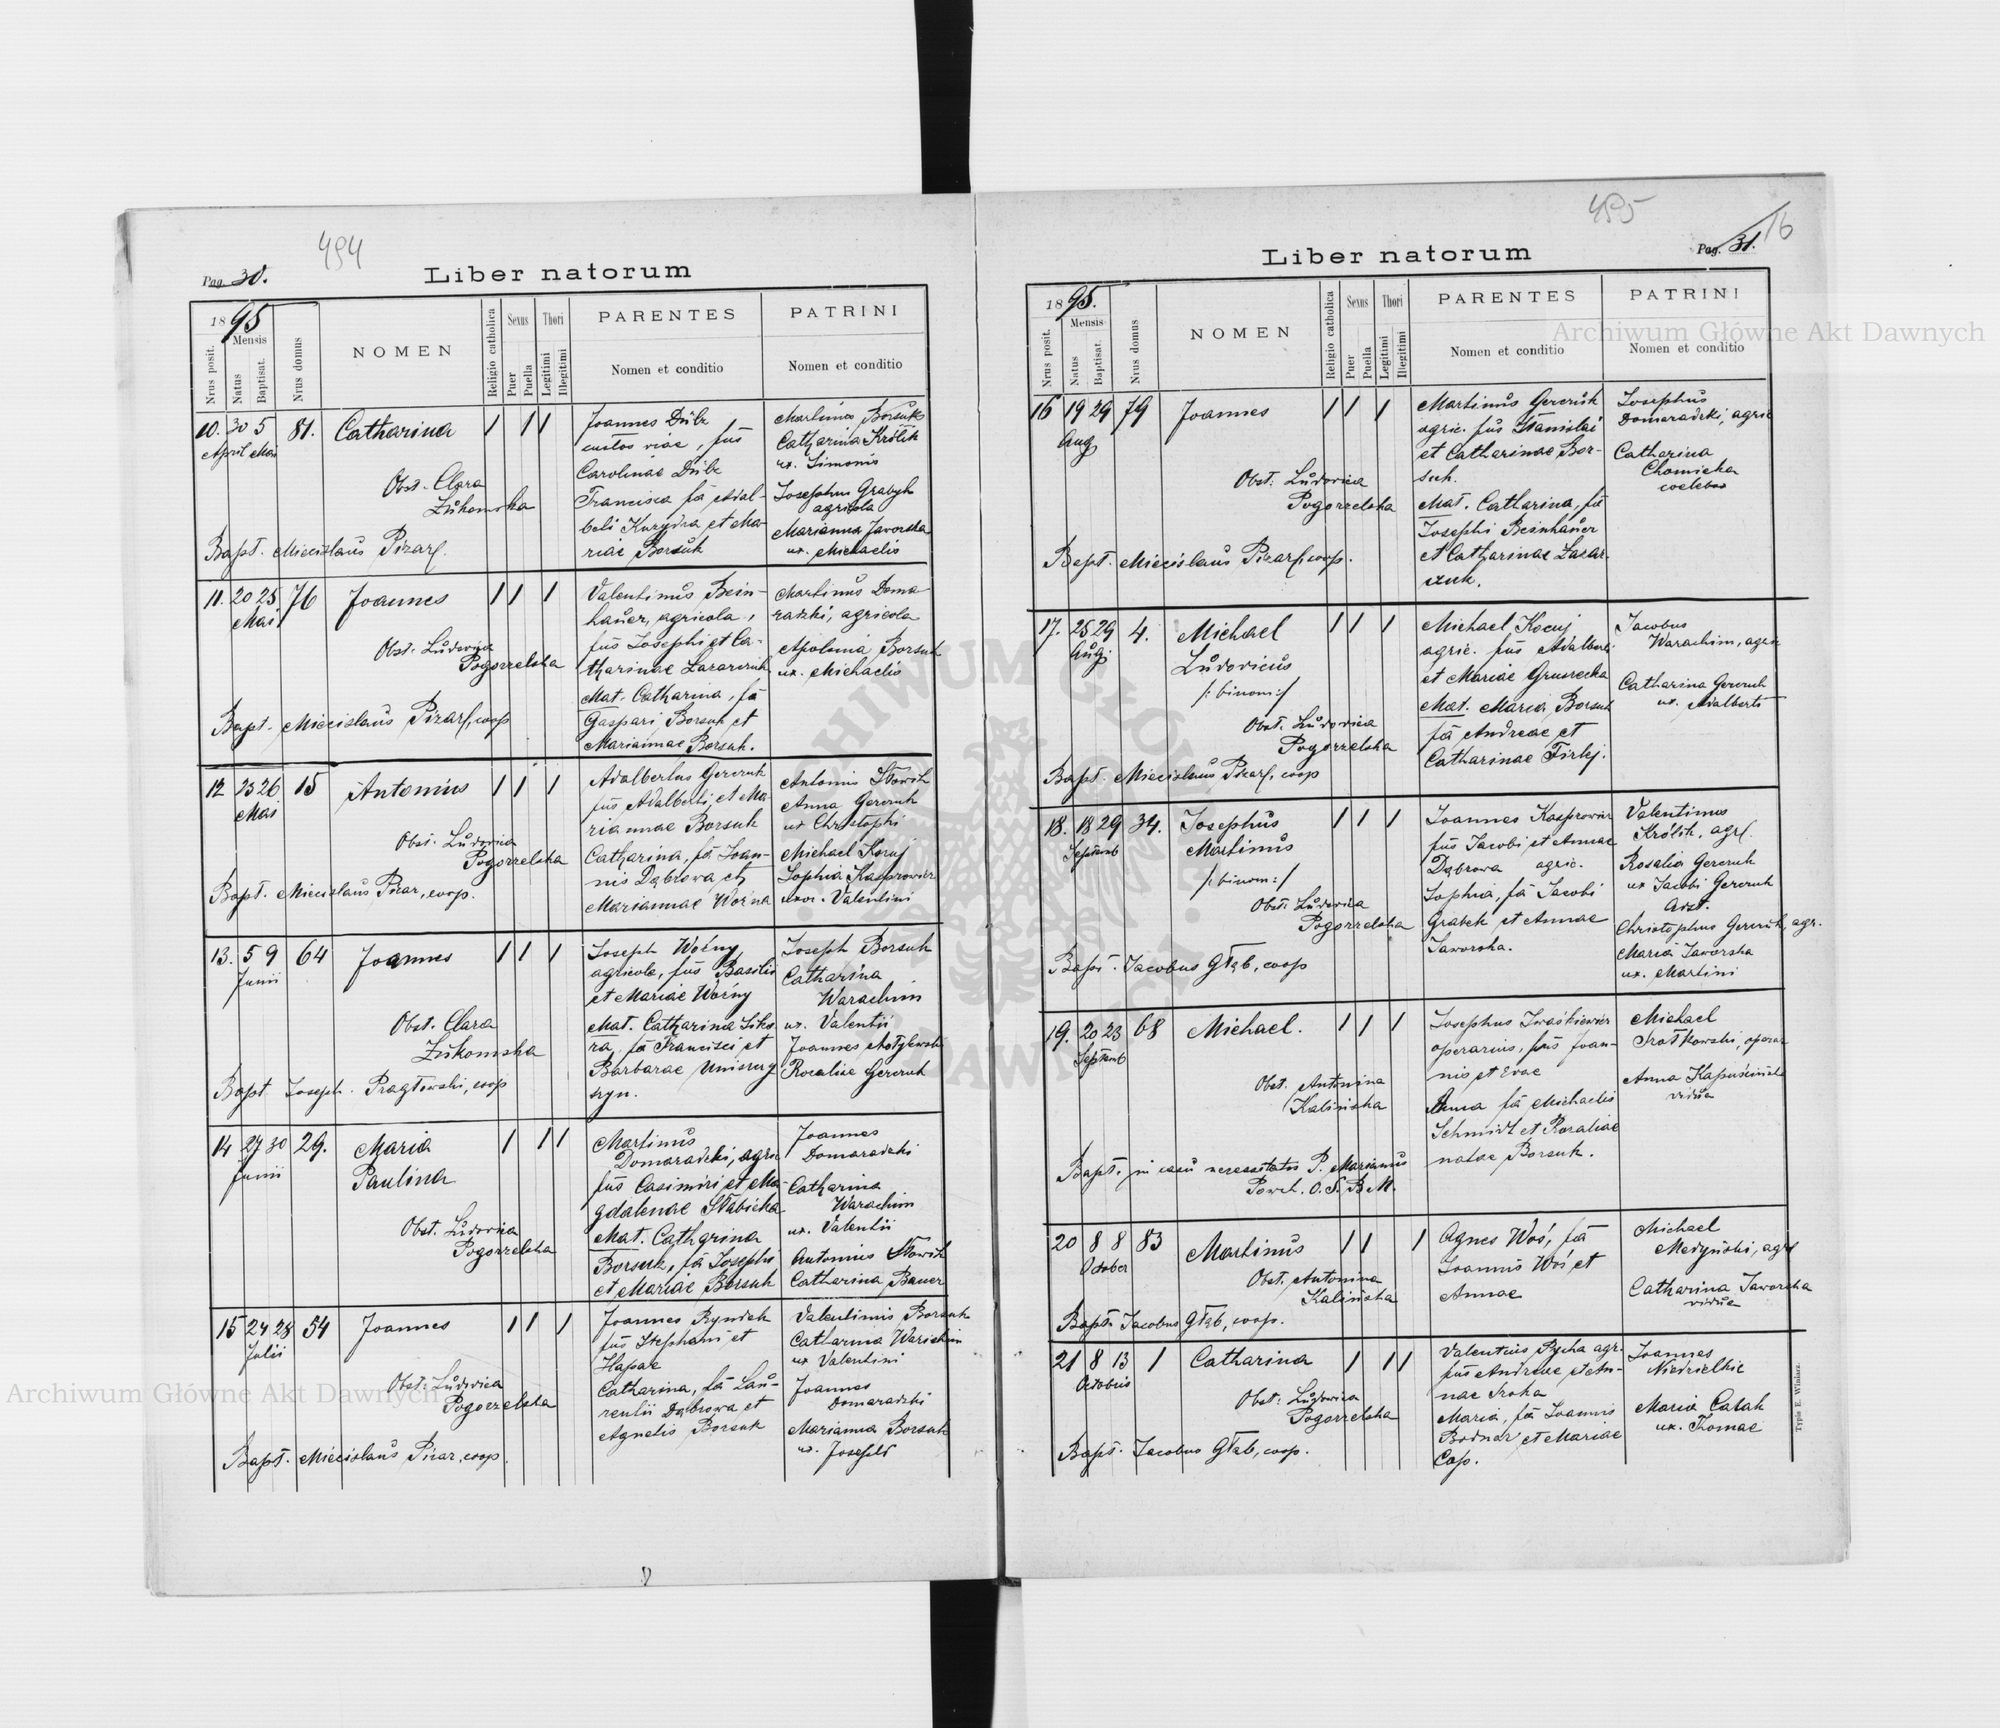 494
Pag. 30.
Liber natorum
1895
Mensis
Nrus posit.
Natus
Baptisat.
Nrus domus
NOMEN
Religio catholica
Sexus
Puer
Puella
Thori
Legitimi
Illegitimi
PARENTES
Nomen et conditio
PATRINI
Nomen et conditio
10. 30 5 81. Catharina 1 1 1
April Mai
Obst. Clara
Żukomska
Bapt. Miecislaus Pizar,
Joannes Dübe
custos viae, fůs
Carolinae Dübe
Francisca fa Adal-
berti Kuzydra et Ma-
riae Borsuk
Martinus Borsuk
Catharina Królik
ux. Simonis
Josephus Grabyk
agricola
Marianna Jaworska
ux. Michaelis
11. 20 25 76 Joannes 1 1 1
Mai
Obst. Ludovica
Pogorzelska
Bapt. Miecislaus Pizar, coop
Valentinus Bein-
hauer, agricola,
fůs Josephi et Ca-
tharinae Lazarczuk
Mat. Catharina, fa
Gaspari Borsuk et
Mariannae Borsuk.
Martinus Doma
radzki, agricola
Apolonia Borsuk
ux. Michaelis
12 23 26 15 Antonius 1 1 1
Mai
Obst. Ludovica
Pogorzelska
Bapt. Miecislaus Pizar, coop.
Adalbertus Gerczuk
fůs Adalberti et Ma-
riannae Borsuk
Catharina, fa Joan-
nis Dąbrowa et
Mariannae Woźna
Antonius Słowik
Anna Gerczuk
ux Christophi
Michael Kocuj
Sophia Kasprowicz
uxor. Valentini
13. 5 9 64 Joannes 1 1 1
Junii
Obst. Clara
Żukomska
Bapt Joseph. Pragłowski, coop
Joseph Woźny
agricola, fůs Basilii
et Mariae Woźny
Mat. Catharina Siko
ra, fa Francisci et
Barbarae
Joseph Borsuk
Catharina
Warachim
ux. Valentii
Joannes
Rozaliae Gerczuk
14 27 30 29. Maria 1 1 1
Junii
Paulina
Obst. Ludovica
Pogorzelska
Martinus
Domaradzki, agric
fůs Casimiri et Ma-
gdalenae Słabicka
Mat. Catharina
Borsuk, fa Josephi
et Mariae Borsuk
Joannes
Domaradzki
Catharina
Warachim
ux. Valentii
Antonius Słowik
Catharina Bauer
15 24 28 54 Joannes 1 1 1
Julii
Obst: Ludovica
Pogorzelska
Bapt. Miecislaus Pizar, coop.
Joannes Ryndek
fůs Stephani et
Catharina, fa Lau-
rentii Dąbrowa et
Agnetis Borsuk
Valentinus Borsuk
Catharina Warachim
ux Valentini
Joannes
Domaradzki
Marianna Borsuk
ux. Josephi
495
Pag. 31.
16
Liber natorum
1895.
Mensis
Nrus posit.
Natus
Baptisat.
Nrus domus
NOMEN
Religio catholica
Sexus
Puer
Puella
Thori
Legitimi
Illegitimi
PARENTES
Nomen et conditio
PATRINI
Nomen et conditio
16 19 29 79 Joannes 1 1 1
Aug
Obst: Ludovica
Pogorzelska
Bapt. Miecislaus Pizar, coop.
Martinus Gerczuk
agric. fůs Stanislai
et Catharinae Bor-
suk.
Mat. Catharina, fa
Josephi Beinhauer
et Catharinae Lazar-
czuk.
Josephus
Domaradzki, agric
Catharina
Chomicka
coelebs
17. 25 29 4. Michael 1 1 1
Aug.
Ludovicus
/: binom :/
Obst. Ludovica
Pogorzelska
Bapt. Miecislaus Pizar, coop
Michael Kocuj
agric. fůs Adalberti
et Mariae Gruszecka
Mat. Maria Borsuk
fa Andreae et
Catharinae Firlej.
Jacobus
Warachim, agric
Catharina Gerczuk
ux. Adalberti
18. 18 29 34. Josephus 1 1 1
Septemb
Martinus
/: binom :/
Obst. Ludovica
Pogorzelska
Bapt. Jacobus Głąb, coop
Joannes Kasprowicz
fůs Jacobi et Annae
Dąbrowa agric.
Sophia, fa Jacobi
Grabek et Annae
Jaworska.
Valentinus
Królik, agr.
Rosalia Gerczuk
ux Jacobi Gerczuk
Christophus Gerczuk, agr.
Maria Jaworska
ux. Martini
19. 20 23 68 Michael. 1 1 1
Septemb
Obst. Antonina
Kalińska
Bapt. in casu necessitatis P. Marianus
Powch. O. S. B. M.
Josephus Iwaśkiewicz
operarius, fůs Joan-
nis et Evae
Anna fa Michaelis
Schmidt et Rozaliae
natae Borsuk.
Michael
Tratkowski, operar
Anna Kapuścińska
vidua
20 8 8 83 Martinus 1 1 1
October
Obst. Antonina
Kalińska
Bapt. Jacobus Głąb, coop.
Agnes Woś, fa
Joannis Woś et
Annae
Michael
Medyński, agr
Catharina Jaworska
vidua
21 8 13 1 Catharina 1 1 1
Octobris
Obst: Ludovica
Pogorzelska
Bapt. Jacobus Głąb, coop.
Valentius Pycha agr.
fůs Andreae et An-
nae Sroka
Maria, fa Joannis
Bodnar et Mariae
Cap.
Joannes
Niedzielkie
Maria Casak
ux. Thomae
Typis E. Winiarz.
Archiwum Główne Akt Dawnych
Archiwum Główne Akt Dawnych
ARCHIWUM GŁÓWNE AKT DAWNYCH